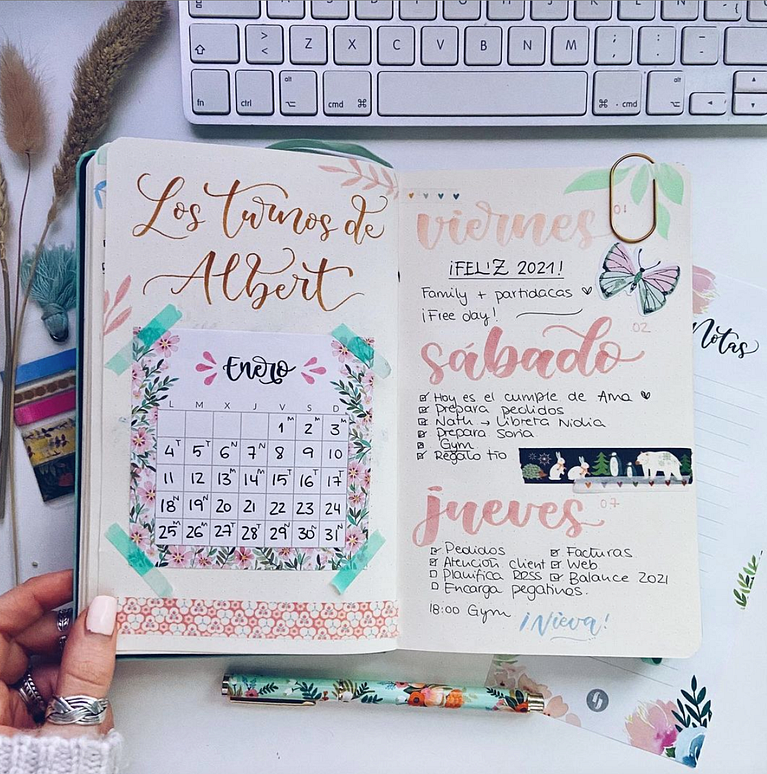 Los turnos de
Albert
Enero
L M X J V S D
1M 2M 3M
4T 5T 6N 7N 8 9 10
11 12 13M 14M 15T 16T 17T
18N 19N 20 21 22 23 24
25M 26M 27T 28T 29N 30N 31N
viernes 01
¡FELIZ 2021!
Family + partidacas
¡Free day!
sábado 02
Hoy es el cumple de Ama
Prepara pedidos
Nath → Libreta Nidia
Prepara Sonia
Gym
Regalo tío
jueves 07
Pedidos
Atencion client
Planifica RRSS
Encarga pegatinas.
Facturas
Web
Balance 2021
18:00 Gym
¡Nieva!
Notas
< >
Z
X
C
V
B
N
M
; ,
: .
_ -
fn
ctrl
alt
cmd ⌘
⌘ cmd
alt